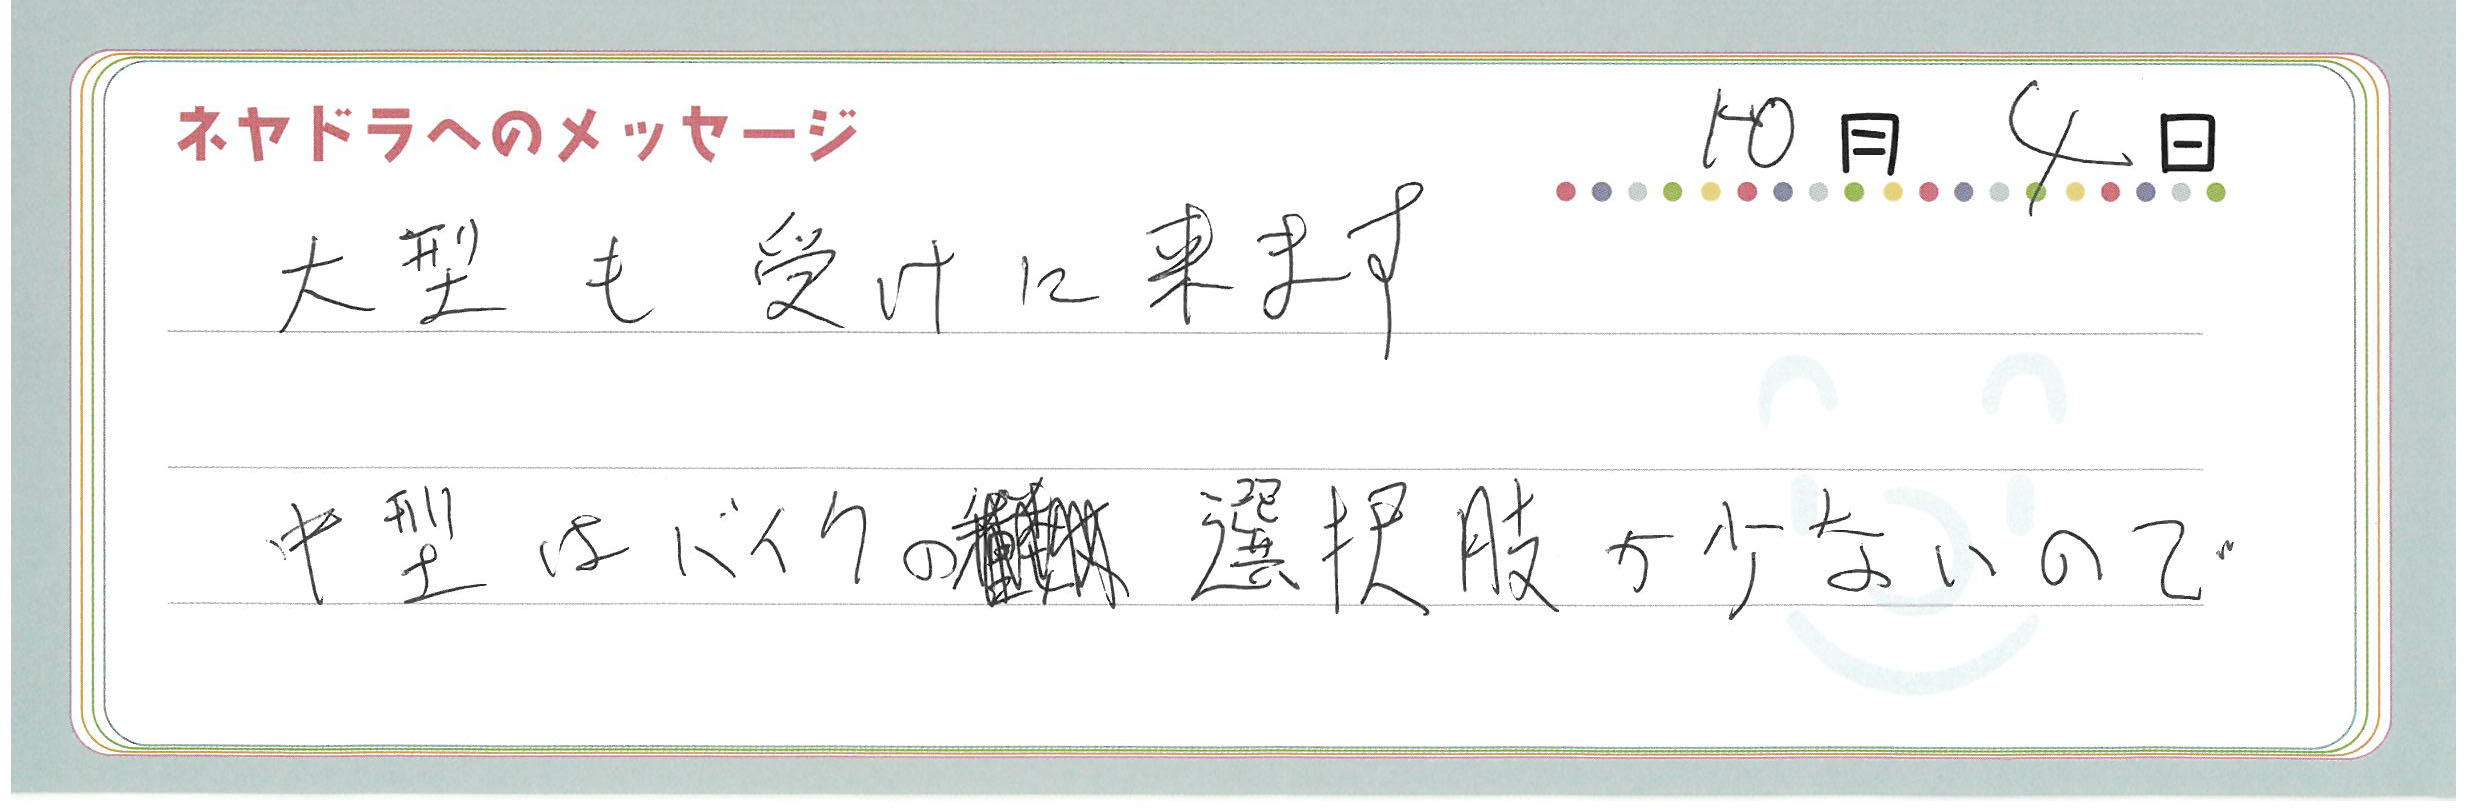 ネヤドラへのメッセージ
10月 4日
大型も受けに来ます
中型はバイクの選択肢が少ないので